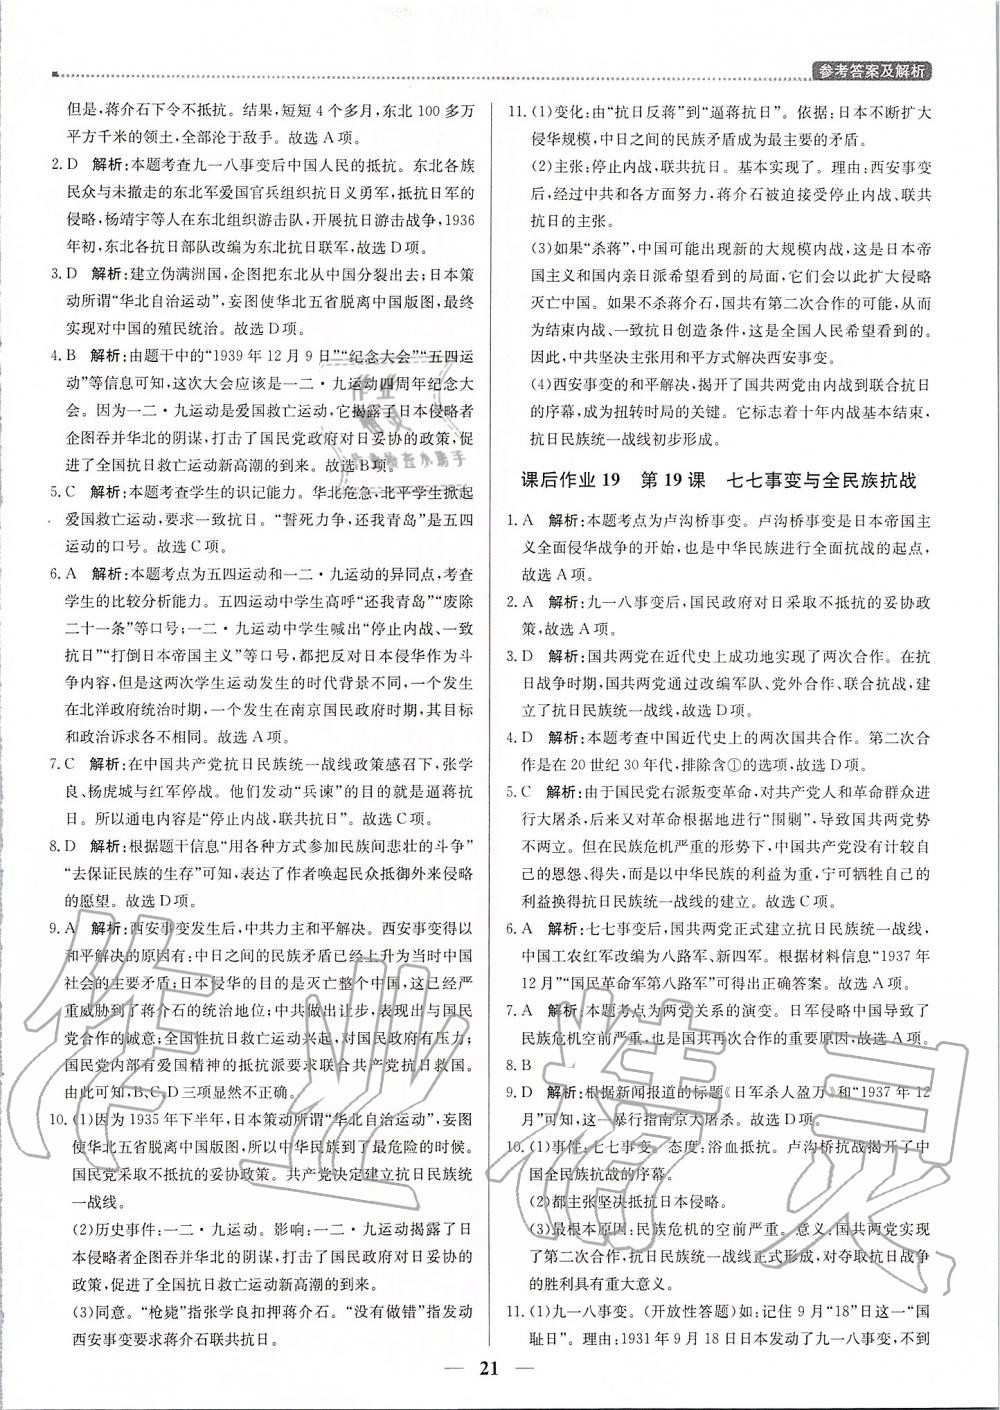 参考答案及解析
但是,蒋介石下令不抵抗。结果,短短 4 个多月,东北 100 多万
平方千米的领土,全部沦于敌手。故选 A 项。
2. D 解析:本题考查九一八事变后中国人民的抵抗。东北各族
民众与未撤走的东北军爱国官兵组织抗日义勇军,抵抗日军的
侵略,杨靖宇等人在东北组织游击队,开展抗日游击战争,1936
年初,东北各抗日部队改编为东北抗日联军,故选 D 项。
3. D 解析:建立伪满洲国,企图把东北从中国分裂出去;日本策
动所谓“华北自治运动”,妄图使华北五省脱离中国版图,最终
实现对中国的殖民统治。故选 D 项。
4. B 解析:由题干中的“1939 年 12 月 9 日”“纪念大会”“五四运
动”等信息可知,这次大会应该是一二・九运动四周年纪念大
会。因为一二・九运动是爱国救亡运动,它揭露了日本侵略者
企图吞并华北的阴谋,打击了国民党政府对日妥协的政策,促
进了全国抗日救亡运动新高潮的到来。故选 B 项。
5. C 解析:本题考查学生的识记能力。华北危急,北平学生掀起
爱国救亡运动,要求一致抗日。“誓死力争,还我青岛”是五四
运动的口号。故选 C 项。
6. A 解析:本题考点为五四运动和一二・九运动的异同点,考查
学生的比较分析能力。五四运动中学生高呼“还我青岛”“废除
二十一条”等口号;一二・九运动中学生喊出“停止内战、一致
抗日”“打倒日本帝国主义”等口号,都把反对日本侵华作为斗
争内容,但是这两次学生运动发生的时代背景不同,一个发生
在北洋政府统治时期,一个发生在南京国民政府时期,其目标
和政治诉求各不相同。故选 A 项。
7. C 解析:在中国共产党抗日民族统一战线政策感召下,张学
良、杨虎城与红军停战。他们发动“兵谏”的目的就是逼蒋抗
日。所以通电内容是“停止内战,联共抗日”。故选 C 项。
8. D 解析:根据题干信息“用各种方式参加民族间悲壮的斗争”
“去保证民族的生存”可知,表达了作者唤起民众抵御外来侵略
的愿望。故选 D 项。
9. A 解析:西安事变发生后,中共力主和平解决。西安事变得以
和平解决的原因有:中日之间的民族矛盾已经上升为当时中国
社会的主要矛盾;日本侵华的目的是灭亡整个中国,这已经严
重威胁到了蒋介石的统治地位;中共做出让步,表现了与国民
党合作的诚意;全国性抗日救亡运动兴起,对国民政府有压力;
国民党内部有爱国精神的抵抗派要求联合共产党抗日救国。
由此可知,B、C、D 三项显然不正确。
10. (1)因为 1935 年下半年,日本策动所谓“华北自治运动”,妄图
使华北五省脱离中国版图,所以中华民族到了最危险的时候。
国民党采取不抵抗的妥协政策。共产党决定建立抗日民族统
一战线。
(2)历史事件:一二・九运动。影响:一二・九运动揭露了日
本侵略者企图吞并华北的阴谋,打击了国民政府对日妥协的
政策,促进了全国抗日救亡运动新高潮的到来。
(3)同意。“枪毙”指张学良扣押蒋介石。“没有做错”指发动
西安事变要求蒋介石联共抗日。
11. (1)变化:由“抗日反蒋”到“逼蒋抗日”。依据:日本不断扩大
侵华规模,中日之间的民族矛盾成为最主要的矛盾。
(2)主张:停止内战,联共抗日。基本实现了。理由:西安事变
后,经过中共和各方面努力,蒋介石被迫接受停止内战、联共
抗日的主张。
(3)如果“杀蒋”,中国可能出现新的大规模内战,这是日本帝
国主义和国内亲日派希望看到的局面,它们会以此扩大侵略
灭亡中国。如果不杀蒋介石,国共有第二次合作的可能,从而
为结束内战、一致抗日创造条件,这是全国人民希望看到的。
因此,中共坚决主张用和平方式解决西安事变。
(4)西安事变的和平解决,揭开了国共两党由内战到联合抗日
的序幕,成为扭转时局的关键。它标志着十年内战基本结束,
抗日民族统一战线初步形成。
课后作业 19 第 19 课 七七事变与全民族抗战
1. A 解析:本题考点为卢沟桥事变。卢沟桥事变是日本帝国主
义全面侵华战争的开始,也是中华民族进行全面抗战的起点,
故选 A 项。
2. A 解析:九一八事变后,国民政府对日采取不抵抗的妥协政
策,故选 A 项。
3. D 解析:国共两党在近代史上成功地实现了两次合作。在抗
日战争时期,国共两党通过改编军队、党外合作、联合抗战,建
立了抗日民族统一战线,故选 D 项。
4. D 解析:本题考查中国近代史上的两次国共合作。第二次合
作是在 20 世纪 30 年代,排除含①的选项,故选 D 项。
5. C 解析:由于国民党右派叛变革命,对共产党人和革命群众进
行大屠杀,后来又对革命根据地进行“围剿”,导致国共两党势
不两立。但在民族危机严重的形势下,中国共产党没有计较自
己的恩怨、得失,而是以中华民族的利益为重,宁可牺牲自己的
利益换得抗日民族统一战线的建立。故选 C 项。
6. A 解析:七七事变后,国共两党正式建立抗日民族统一战线,
中国工农红军改编为八路军、新四军。根据材料信息“1937 年
12 月”“国民革命军第八路军”可得出正确答案。故选 A 项。
7. A 解析:本题考点为两党关系的演变。日军侵略中国导致了
民族危机空前严重,也是国共再次合作的重要原因,故选 A 项。
8. B
9. D 解析:根据新闻报道的标题《日军杀人盈万》和“1937 年 12
月”可知,这一暴行指南京大屠杀。故选 D 项。
10. (1)事件:七七事变。态度:浴血抵抗。卢沟桥抗战揭开了中
国全民族抗战的序幕。
(2)都主张坚决抵抗日本侵略。
(3)最根本原因:民族危机的空前严重。意义:国共两党实现
了第二次合作,抗日民族统一战线正式形成,对夺取抗日战争
的胜利具有重大意义。
11. (1)九一八事变。(开放性答题)如:记住 9 月“18”日这一“国
耻日”。理由:1931 年 9 月 18 日日本发动了九一八事变,不到
21
作业精灵